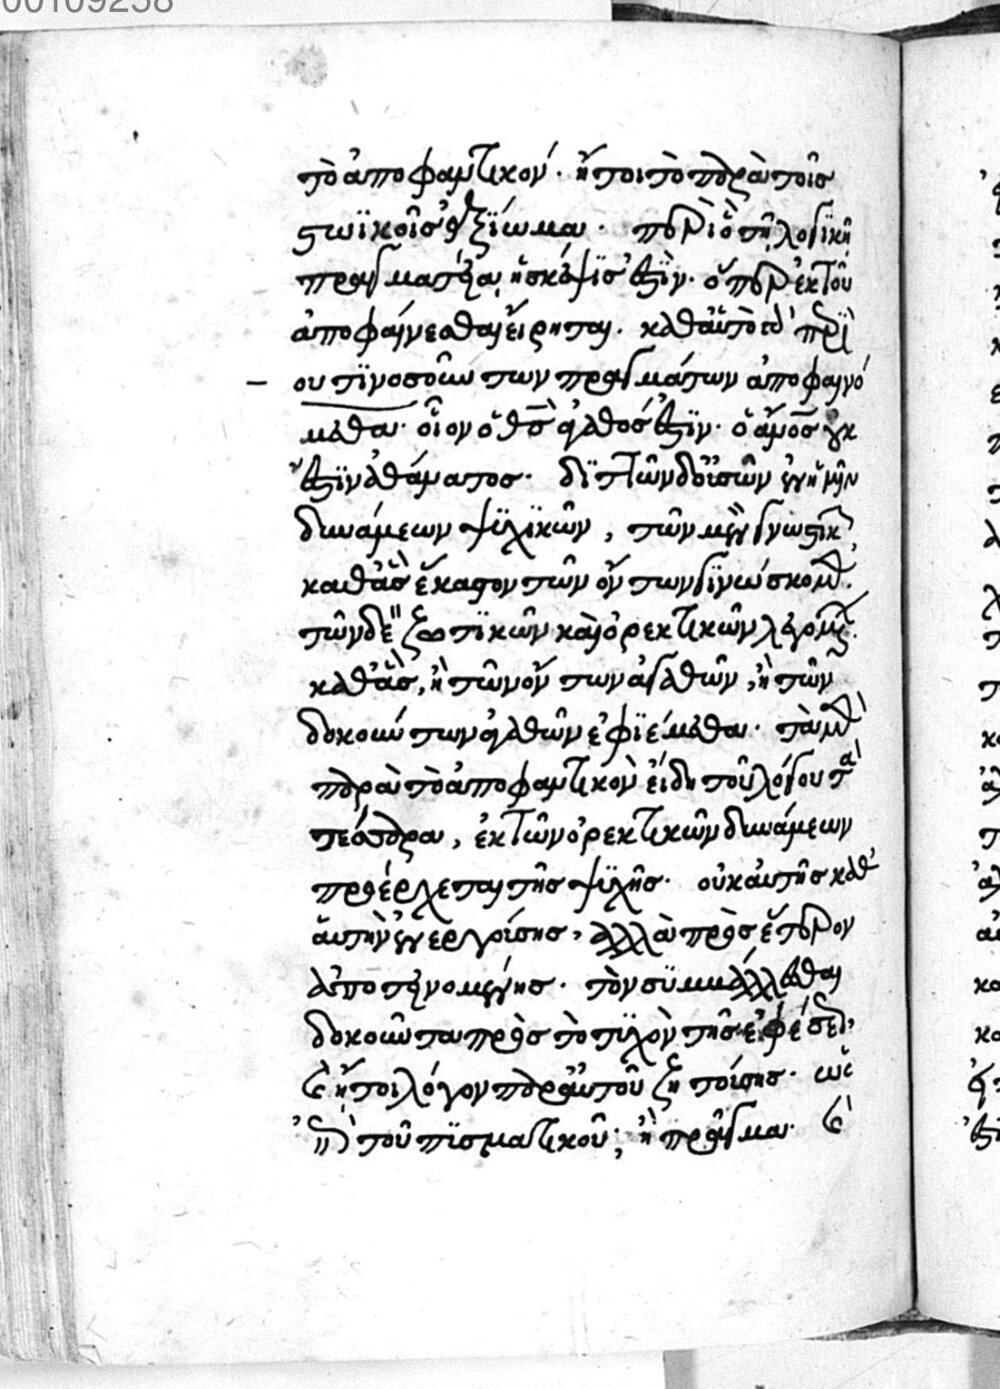 00109258
τὸ ἀποφαντικόν· ἤτοι τὸ παρὰ τοῖς
στωϊκοῖς ἀξίωμα· περὶ ὃ τῆ λογικῆ
πραγματεία, ἡ σκέψις ἐστὶν· ὅπερ ἐκ τοῦ
ἀποφαίνεσθαι εἴρηται· καθ' αὐτὸ γὰρ περὶ
ου τινοσοῦν των πραγμάτων ἀποφαινό
μεθα· οἷον ὁ θς ἀγαθός ἐστιν· ὁ ἄνος οὐκ
ἔστιν ἀθάνατος· διττῶν δ' οὐσῶν ἐν ἡμῖν
δυνάμεων ψυχικῶν, τῶν μὲν γνωστικ
καθ' ἃς ἕκαστον τῶν ὄντων γινώσκομεν·
τῶν δὲ ζωτικῶν καὶ ὀρεκτικῶν λεγομένων·
καθ' ἃς, ἢ τῶν ὄντων ἀγαθῶν, ἢ τῶν
δοκούντων ἀγαθῶν ἐφιέμεθα· τὰ μὲν
παρὰ τὸ ἀποφαντικὸν εἴδη τοῦ λόγου τὰ
τέσσαρα, ἐκ τῶν ὀρεκτικῶν δυνάμεων
προέρχεται τῆς ψυχῆς· οὐκ αὐτῆς καθ'
αὑτὴν ἐνεργούσης, ἀλλὰ πρὸς ἕτερον
ἀποτεινομένης· τὸν συμβάλλεσθαι
δοκοῦντα πρὸς τὸ τυχὸν τῆς ἐφέσεως,
καὶ ἤτοι λόγον παρ' αὐτοῦ ζητούσης· ὡς
ἐπὶ τοῦ πυσματικοῦ, ἢ πρᾶγμα· καὶ